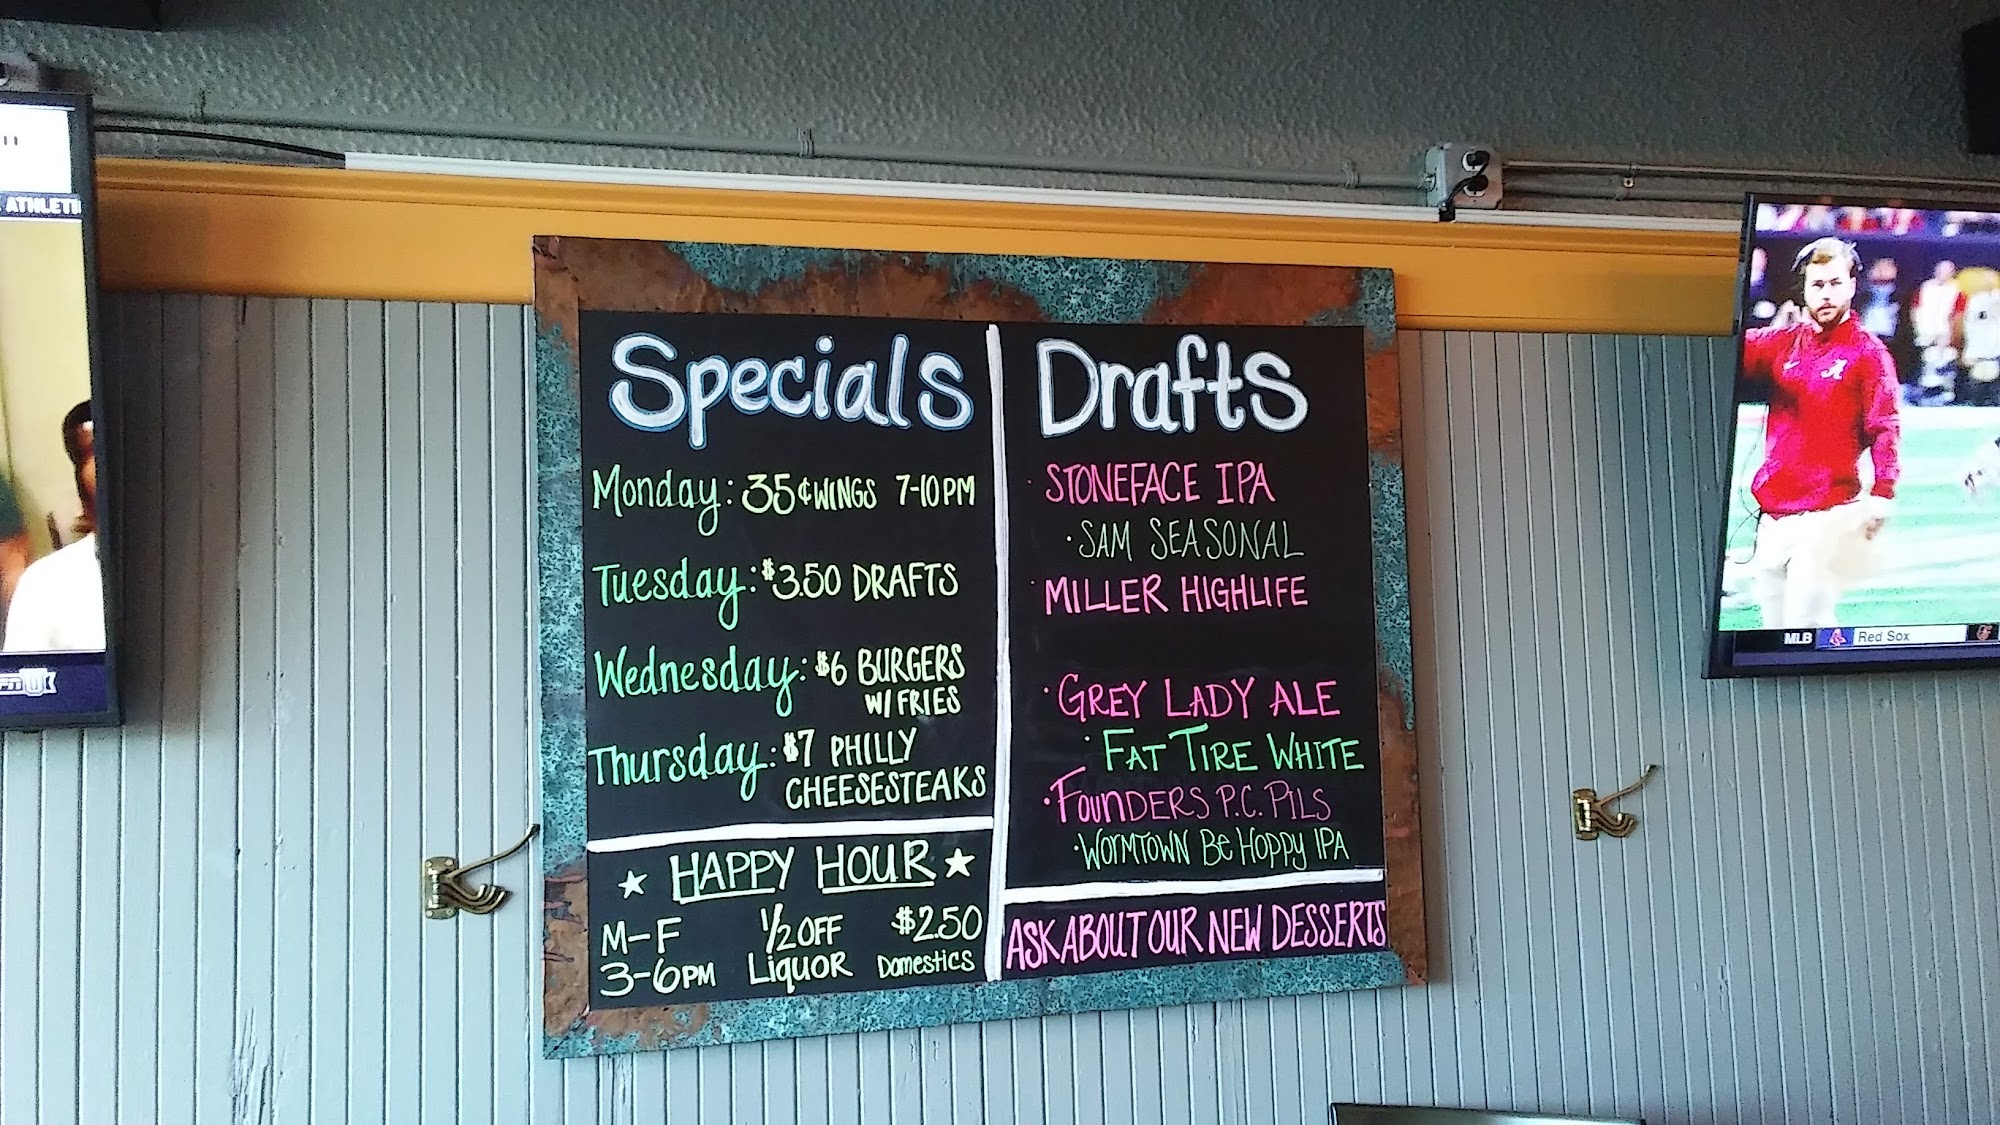 ATHLETI
Specials
Monday: 35¢ WINGS 7-10PM
Tuesday: $3.50 DRAFTS
Wednesday: $6 BURGERS
W/ FRIES
Thursday: $7 PHILLY
CHEESESTEAKS
★ HAPPY HOUR ★
M-F 1/2 OFF $2.50
3-6PM LIQUOR DOMESTICS
Drafts
· STONEFACE IPA
· SAM SEASONAL
· MILLER HIGHLIFE
· GREY LADY ALE
· FAT TIRE WHITE
· FOUNDERS P.C. PILS
· WORMTOWN Be HOPPY IPA
ASK ABOUT OUR NEW DESSERTS
A
MLB Red Sox